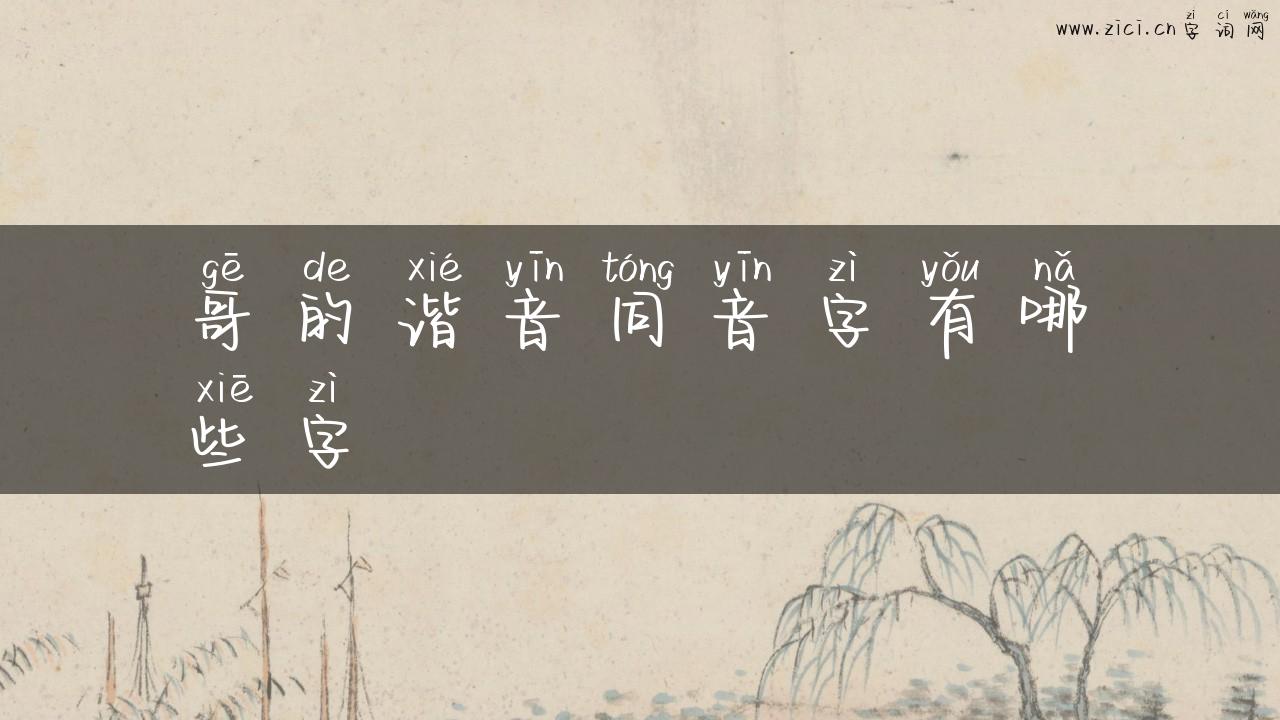 zì cí wǎng
www.zici.cn 字词网
gē de xié yīn tóng yīn zì yǒu nǎ
哥的谐音同音字有哪
xiē zì
些字